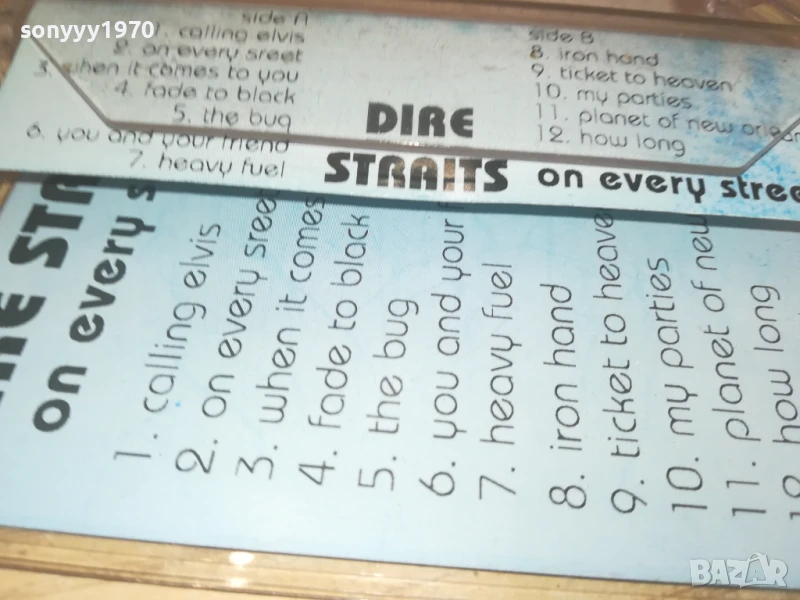 sonyyy1970
side A
1. calling elvis
2. on every sreet
3. when it comes to you
4. fade to black
5. the bug
6. you and your friend
7. heavy fuel
side B
8. iron hand
9. ticket to heaven
10. my parties
11. planet of new orlean
12. how long
DIRE
STRAITS on every stree
RE STRA
on every s
1. calling elvis
2. on every sree
3. when it comes
4. fade to black
5. the bug
6. you and your f
7. heavy fuel
8. iron hand
9. ticket to heave
10. my parties
11. planet of new
12 how long
BAZAR